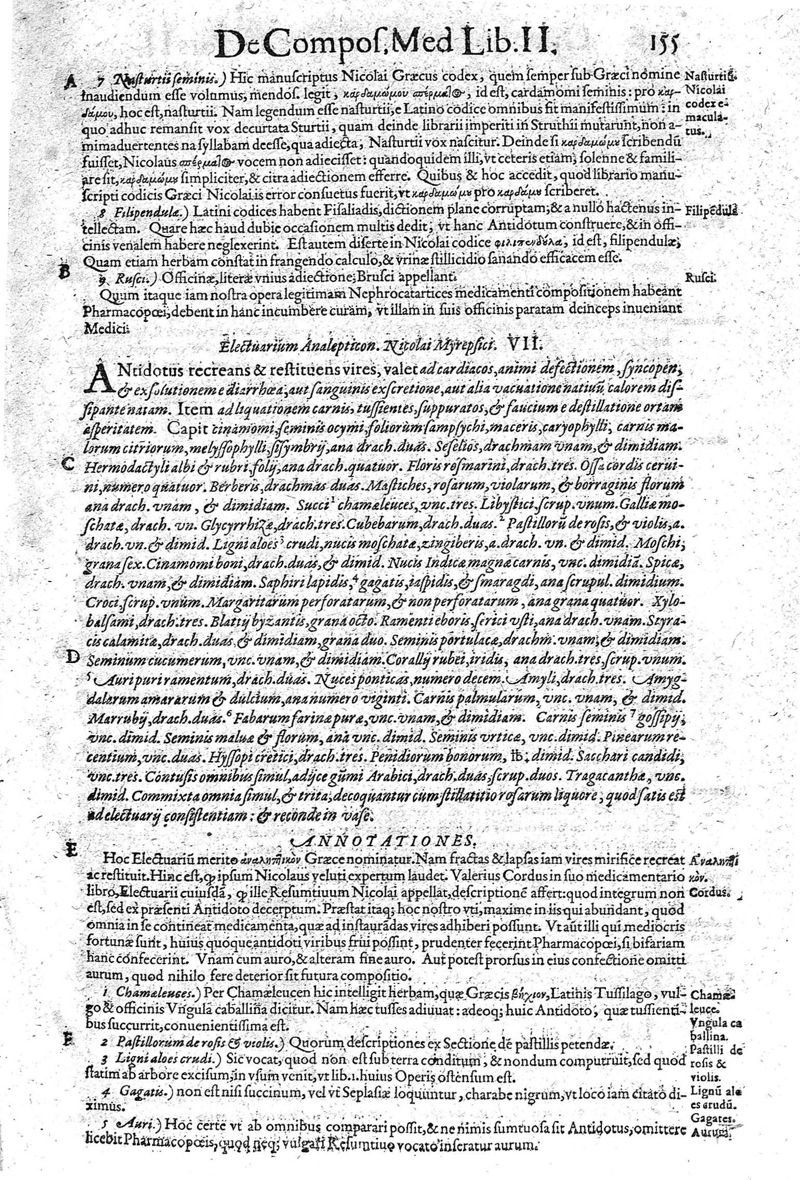 De Compos. Med Lib. II. 155
A 7 Nasturtii seminis.) Hic manuscriptus Nicolai Græcus codex, quem semper sub Græci nomine
inaudiendum esse volumus, mendosè legit, καρδαμώμου σπέρματος, id est, cardamomi seminis: pro καρ-
δάμου, hoc est, nasturtii. Nam legendum esse nasturtii, e Latino codice omnibus fit manifestissimum: in
quo adhuc remansit vox decurtata Sturtii, quam deinde librarii imperiti in Struthii mutarunt, non a-
nimaduertentes na syllabam deesse, qua adiecta, Nasturtii vox nascitur. Deinde si καρδαμώμου scribendū
fuisset, Nicolaus σπέρματος vocem non adiecisset: quandoquidem illi, vt ceteris etiam, solenne & famili-
are sit, καρδαμώμου simpliciter, & citra adiectionem efferre. Quibus & hoc accedit, quod librario manu-
scripti codicis Græci Nicolai is error consuetus fuerit, vt καρδαμώμου pro καρδάμου scriberet.
Nasturtiū.
Nicolai
codex e-
macula-
tus.
8 Filipendulæ.) Latini codices habent Fisaliadis, dictionem plane corruptam, & a nullo hactenus in-
tellectam. Quare hæc haud dubie occasionem multis dedit, vt hanc Antidotum construere, & in offi-
cinis venalem habere neglexerint. Est autem diserte in Nicolai codice φιλιπενδύλα, id est, filipendulæ,
Quam etiam herbam constat in frangendo calculo, & vrinæ stillicidio sanando efficacem esse.
Filipēdula
B 9 Rusci.) Officinæ, literæ vnius adiectione, Brusci appellant.
Rusci.
Quum itaque iam nostra opera legitimam Nephrocatartices medicamenti compositionem habeant
Pharmacopœi, debent in hanc incumbere curam, vt illam in suis officinis paratam deinceps inueniant
Medici.
Electuarium Analepticon. Nicolai Myrepsici. VII.
ANtidotus recreans & restituens vires, valet ad cardiacos, animi defectionem, syncopen,
& exsolutionem e diarrhœa, aut sanguinis exscretione, aut alia vacuatione natiuū calorem dis-
sipante natam. Item ad liquationem carnis, tussientes, suppuratos, & faucium e destillatione ortam
asperitatem. Capit cinamomi, seminis ocymi, foliorum sampsychi, maceris, caryophylli, carnis ma-
lorum citriorum, melyssophylli, sisymbrij, ana drach. duas. Seselios, drachmam vnam, & dimidiam.
C Hermodactyli albi & rubri, folij, ana drach. quatuor. Floris rosmarini, drach. tres. Ossa cordis cerui-
ni, numero quatuor. Berberis, drachmas duas. Mastiches, rosarum, violarum, & borraginis florum
ana drach. vnam, & dimidiam. Succi 1 chamæleuces, vnc. tres. Libystici, scrup. vnum. Galliæ mo-
schatæ, drach. vn. Glycyrrhizæ, drach. tres. Cubebarum, drach. duas. 2 Pastillorū de rosis, & violis, a.
drach. vn. & dimid. Ligni aloes 3 crudi, nucis moschatæ, zingiberis, a. drach. vn. & dimid. Moschi,
grana sex. Cinamomi boni, drach. duas, & dimid. Nucis Indicæ magnæ carnis, vnc. dimidiā. Spicæ,
drach. vnam, & dimidiam. Saphiri lapidis, 4 gagatis, iaspidis, & smaragdi, ana scrupul. dimidium.
Croci, scrup. vnum. Margaritarum perforatarum, & non perforatarum, ana grana quatuor. Xylo-
balsami, drach. tres. Blatij byzantis, grana octo. Ramenti eboris, serici vsti, ana drach. vnam. Styra-
cis calamitæ, drach. duas & dimidiam, grana duo. Seminis portulacæ, drachm. vnam, & dimidiam.
D Seminum cucumerum, vnc. vnam, & dimidiam. Corallij rubei, iridis, ana drach. tres, scrup. vnum.
5 Auri puri ramentum, drach. duas. Nuces ponticas, numero decem. Amyli, drach. tres. Amyg-
dalarum amararum & dulcium, ana numero viginti. Carnis palmularum, vnc. vnam, & dimid.
Marrubij, drach. duas. 6 Fabarum farinæ puræ, vnc. vnam, & dimidiam. Carnis seminis 7 gossipij,
vnc. dimid. Seminis maluæ & florum, ana vnc. dimid. Seminis vrticæ, vnc. dimid. Pinearum re-
centium, vnc. duas. Hyssopi cretici, drach. tres. Penidiorum bonorum, ℔. dimid. Sacchari candidi,
vnc. tres. Contusis omnibus simul, adijce gūmi Arabici, drach. duas, scrup. duos. Tragacanthæ, vnc.
dimid. Commixta omnia simul, & trita, decoquantur cum stillatitio rosarum liquore, quod satis est
ad electuarij consistentiam: & reconde in vase.
ANNOTATIONES.
E Hoc Electuariū merito ἀναληπτικὸν Græce nominatur. Nam fractas & lapsas iam vires mirifice recreat
ac restituit. Hinc est, q ipsum Nicolaus veluti expertum laudet. Valerius Cordus in suo medicamentario
libro, Electuarii cuiusdā, q ille Resumtiuum Nicolai appellat, descriptionē affert: quod integrum non
est, sed ex præsenti Antidoto decerptum. Præstat itaq; hoc nostro vti, maxime in iis qui abundant, quod
omnia in se contineat medicamenta, quæ ad instaurādas vires adhiberi possunt. Vt aūt illi qui mediocris
fortunæ sunt, huius quoque antidoti viribus frui possint, prudenter fecerint Pharmacopœi, si bifariam
hanc confecerint. Vnam cum auro, & alteram sine auro. Aut potest prorsus in eius confectione omitti
aurum, quod nihilo fere deterior sit futura compositio.
Ἀναληπτι
κόν.
Cordus.
1 Chamæleuces.) Per Chamæleucen hic intelligit herbam, quæ Græcis βήχιον, Latinis Tussilago, vul-
go & officinis Vngula caballina dicitur. Nam hæc tusses adiuuat: adeoq; huic Antidoto, quæ tussienti-
bus succurrit, conuenientissima est.
Chamæ-
leuce.
Vngula ca
ballina.
F 2 Pastillorum de rosis & violis.) Quorum descriptiones ex Sectione de pastillis petendæ.
Pastilli de
rosis &
violis.
3 Ligni aloes crudi.) Sic vocat, quod non est sub terra conditum, & nondum computruit, sed quod
statim ab arbore excisum, in vsum venit, vt lib. 1. huius Operis ostensum est.
Lignū alo
es crudū.
4 Gagatis.) non est nisi succinum, vel vt Seplasiæ loquuntur, charabe nigrum, vt loco iam citato di-
ximus.
Gagates.
5 Auri.) Hoc certe vt ab omnibus comparari possit, & ne nimis sumtuosa sit Antidotus, omittere
licebit Pharmacopœis, quod neq; vulgari Resumtiuo vocato inseratur aurum.
Aurum.